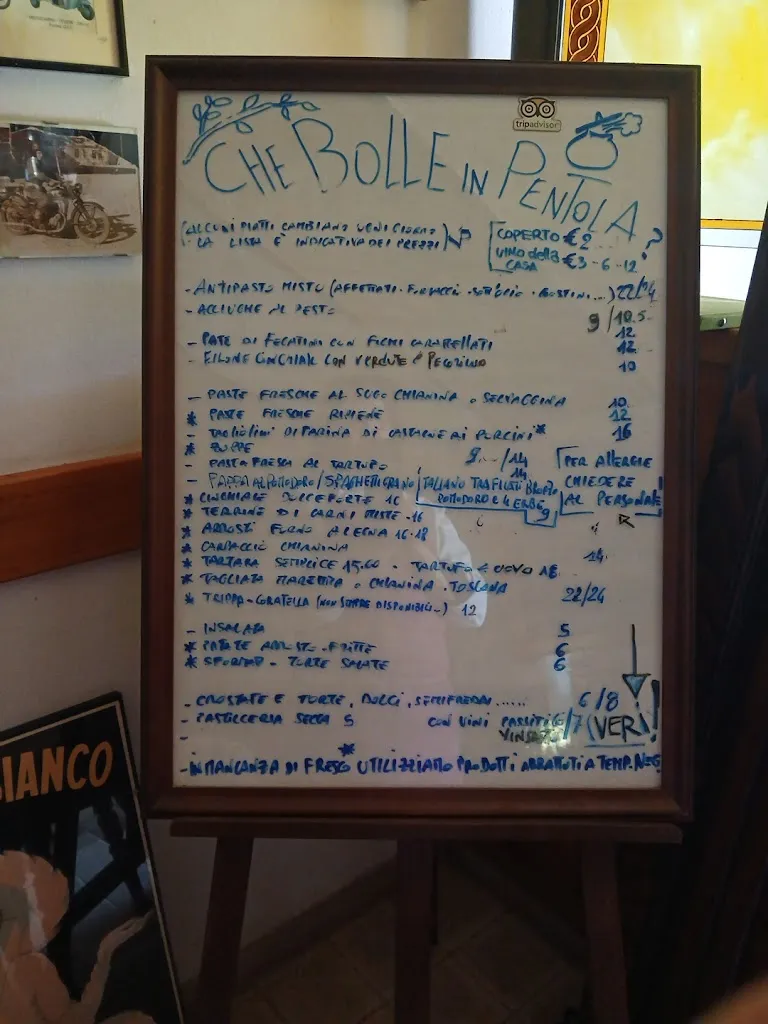 tripadvisor
CHE BOLLE IN PENTOLA
(ALCUNI PIATTI CAMBIANO OGNI GIORNO
LA LISTA È INDICATIVA DEI PREZZI)
COPERTO € 2
VINO della CASA €3 - 6 - 12
?
- ANTIPASTO MISTO (AFFETTATI - FORMAGGI - SOTT'OLIO - CROSTINI ...) 22/24
- ACCIUGHE AL PESTO 9/10.5
12
- PATE DI FEGATINI CON FICHI CARAMELLATI 12
- FILONE CINGHIALE CON VERDURE E PECORINO 10
- PASTE FRESCHE AL SUGO CHIANINA O SELVAGGINA 10
* PASTE FRESCHE RIPIENE 12
- TAGLIOLINI DI FARINA DI CASTAGNE AI PORCINI* 16
* ZUPPE 9 ... /14
- PASTA FRESCA AL TARTUFO 14
- PAPPA AL POMODORO / SPAGHETTI GRANO ITALIANO TRAFILATI BRONZO
POMODORO E 4 ERBE 9
PER ALLERGIE
CHIEDERE
AL PERSONALE
* CINGHIALE DOLCEFORTE 16
* TERRINE DI CARNI MISTE - 16
* ARROSTI FORNO A LEGNA 16-18
* CARPACCIO CHIANINA 14
* TARTARA SEMPLICE 15.00 - TARTUFO E UOVO 18
* TAGLIATA MAREMMA O CHIANINA TOSCANA 22/24
* TRIPPA - CORATELLA (NON SEMPRE DISPONIBILI..) 12
- INSALATA 5
* PATATE ARROSTO - FRITTE 6
* SFORMATI - TORTE SALATE 6
- CROSTATE E TORTE, DOLCI, SEMIFREDDI ...... 6/8
- PASTICCERIA SECCA 5 CON VINI PASSITI 6/7 (VERI!
VINSANTO
-
* - IN MANCANZA DI FRESCO UTILIZZIAMO PRODOTTI ABBATTUTI A TEMP. NEG.
BIANCO